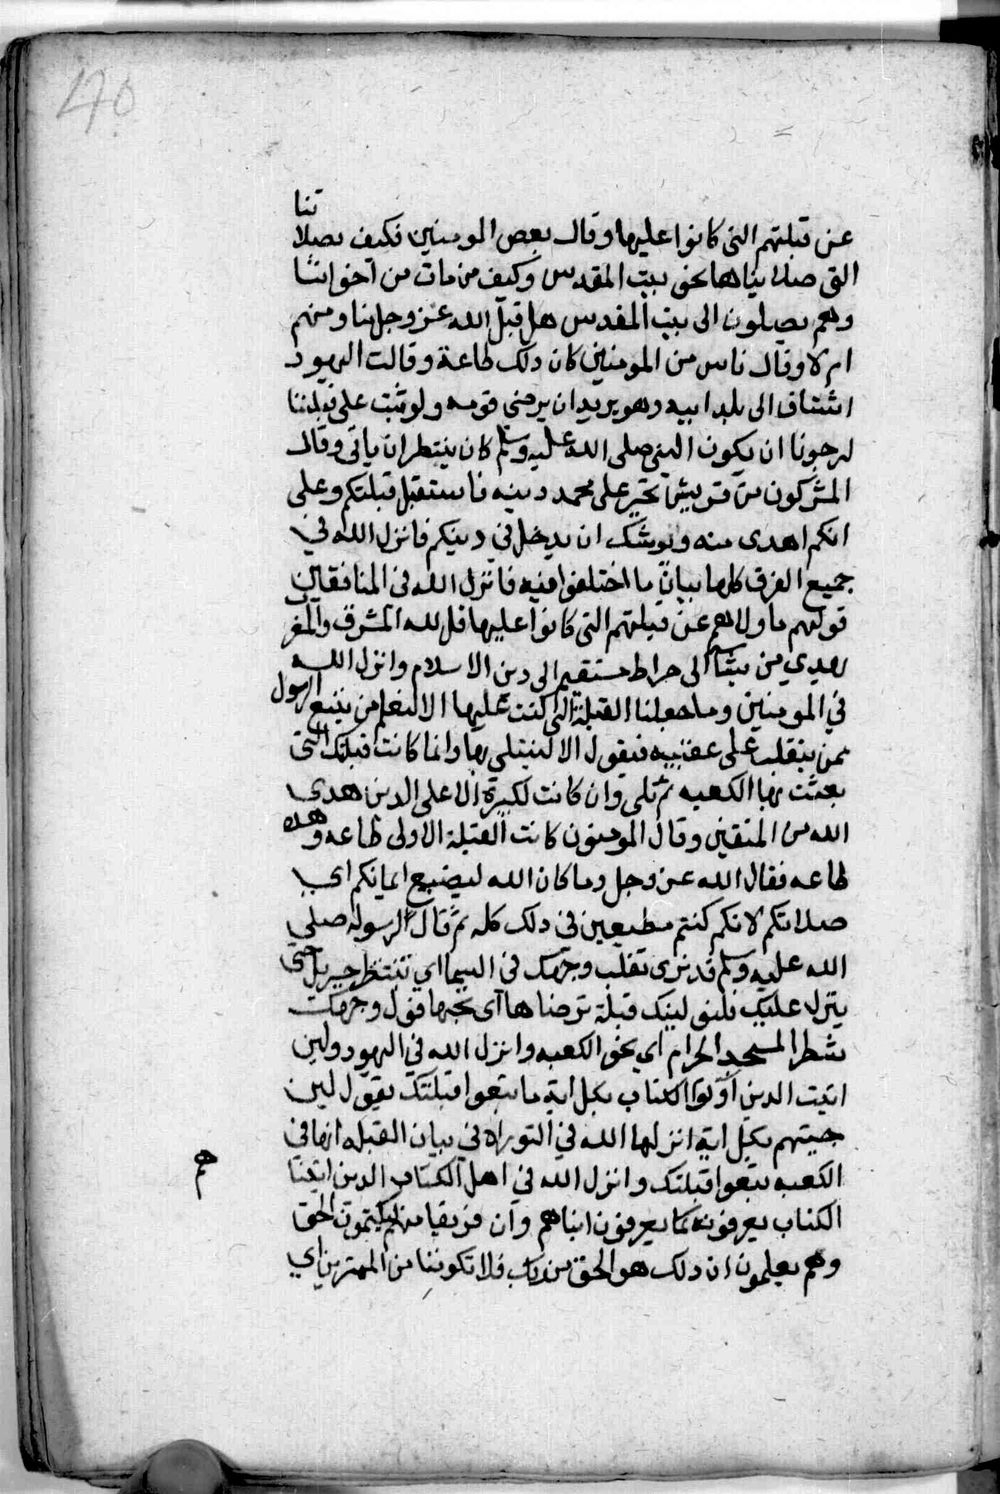 170
عن قبلتهم التي كانوا عليها وقال بعض المومنين فكيف بصلاتنا
التي صليناها نحو بيت المقدس وكيف من مات من اخواننا
وهم يصلون الى بيت المقدس هل قبل الله عز وجل منا ومنهم
ام لا وقال ناس من المومنين كان دلك طاعة وقالت اليهود
اشتاق الى بلد ابيه وهو يريد ان يرضي قومه ولو ثبت على قبلتنا
لرجونا ان يكون النبي صلى الله عليه وسلم كان ينتظر ان ياتي وقال
المشركون من قريش تحير على محمد دينه فاستقبل قبلتكم وعلى
انكم اهدى منه ويوشك ان يدخل في دينكم فانزل الله في
جميع الفرق كلها بيان ما اختلفوا فيه فانزل الله في المنافقين
قولهم ماولاهم عن قبلتهم التي كانوا عليها قل لله المشرق والمغر
يهدي من يشا الى صراط مستقيم الى دين الاسلام وانزل الله
في المومنين وما جعلنا القبلة التي كنت عليها الا لنعلم من يتبع الرسول
ممن ينقلب على عقبيه فيقول الا لنبتلي بها وانما كانت قبلتك التي
بعثت بها الكعبه ثم تلى وان كانت لكبيرة الا على الدين هدى
الله من المتقين وقال المومنون كانت القبلة الاولى طاعه وهده
طاعه فقال الله عز وجل وما كان الله ليضيع ايمانكم اي
صلاتكم لانكم كنتم مطيعين في دلك كله ثم قال لرسوله صلى
الله عليه وسلم قد نرى تقلب وجهك في السما اي تنتظر جبريل حتى
ينزل عليك فلنولينك قبلة ترضاها اي تحبها فول وجهك
شطر المسجد الحرام اي نحو الكعبه وانزل الله في اليهود ولين
اتيت الدين اوتوا الكتاب بكل اية ما تبعوا قبلتك يقول لين
جيتهم بكل اية انزلها الله في التوراه في بيان القبله انها في
الكعبه تبعوا قبلتك وانزل الله في اهل الكتاب الدين اتينا
الكتاب يعرفونه كما يعرفون ابناهم وان فريقا منهم ليكتمون الحق
وهم يعلمون ان دلك هو الحق من ربك فلا تكونن من الممترين اي
هم